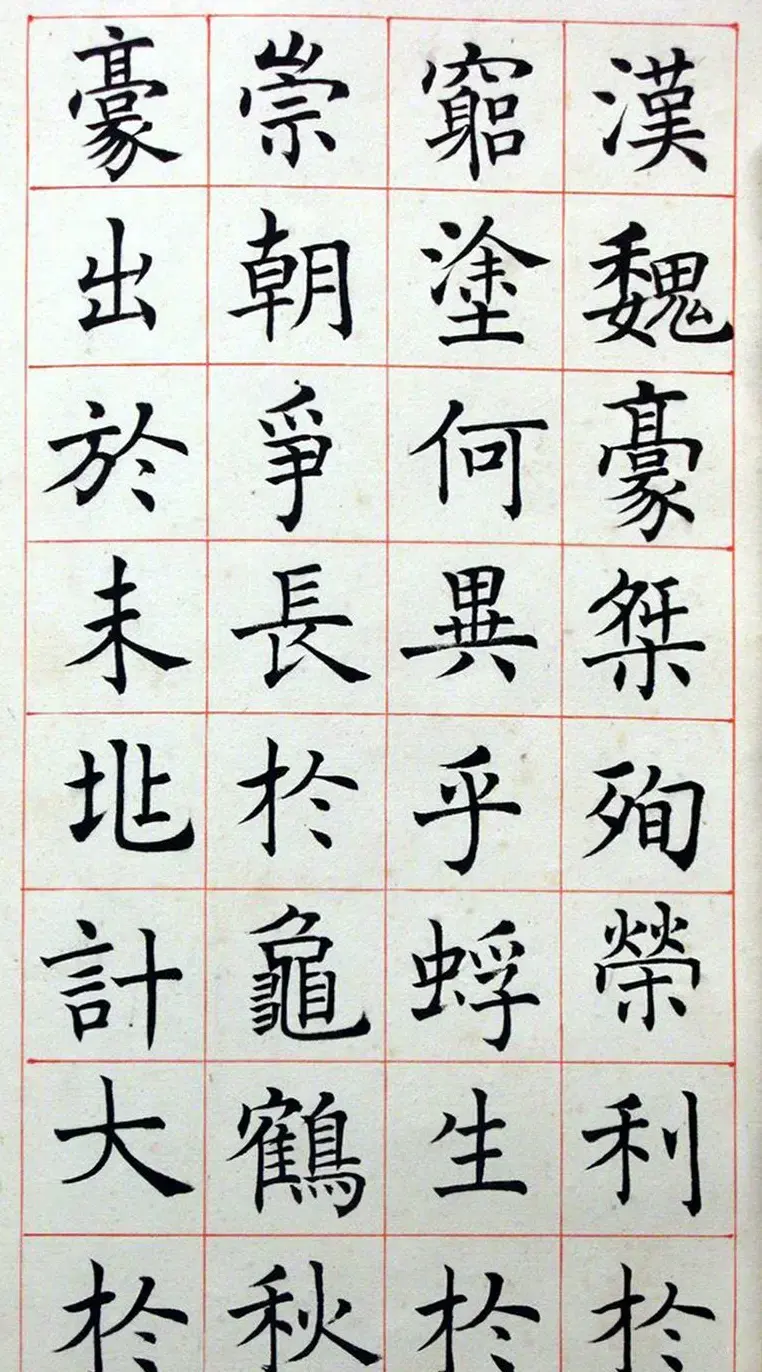 漢魏豪桀殉榮利扵
窮塗何異乎蜉生扵
崇朝爭長扵龜鶴秋
豪出於未計大扵